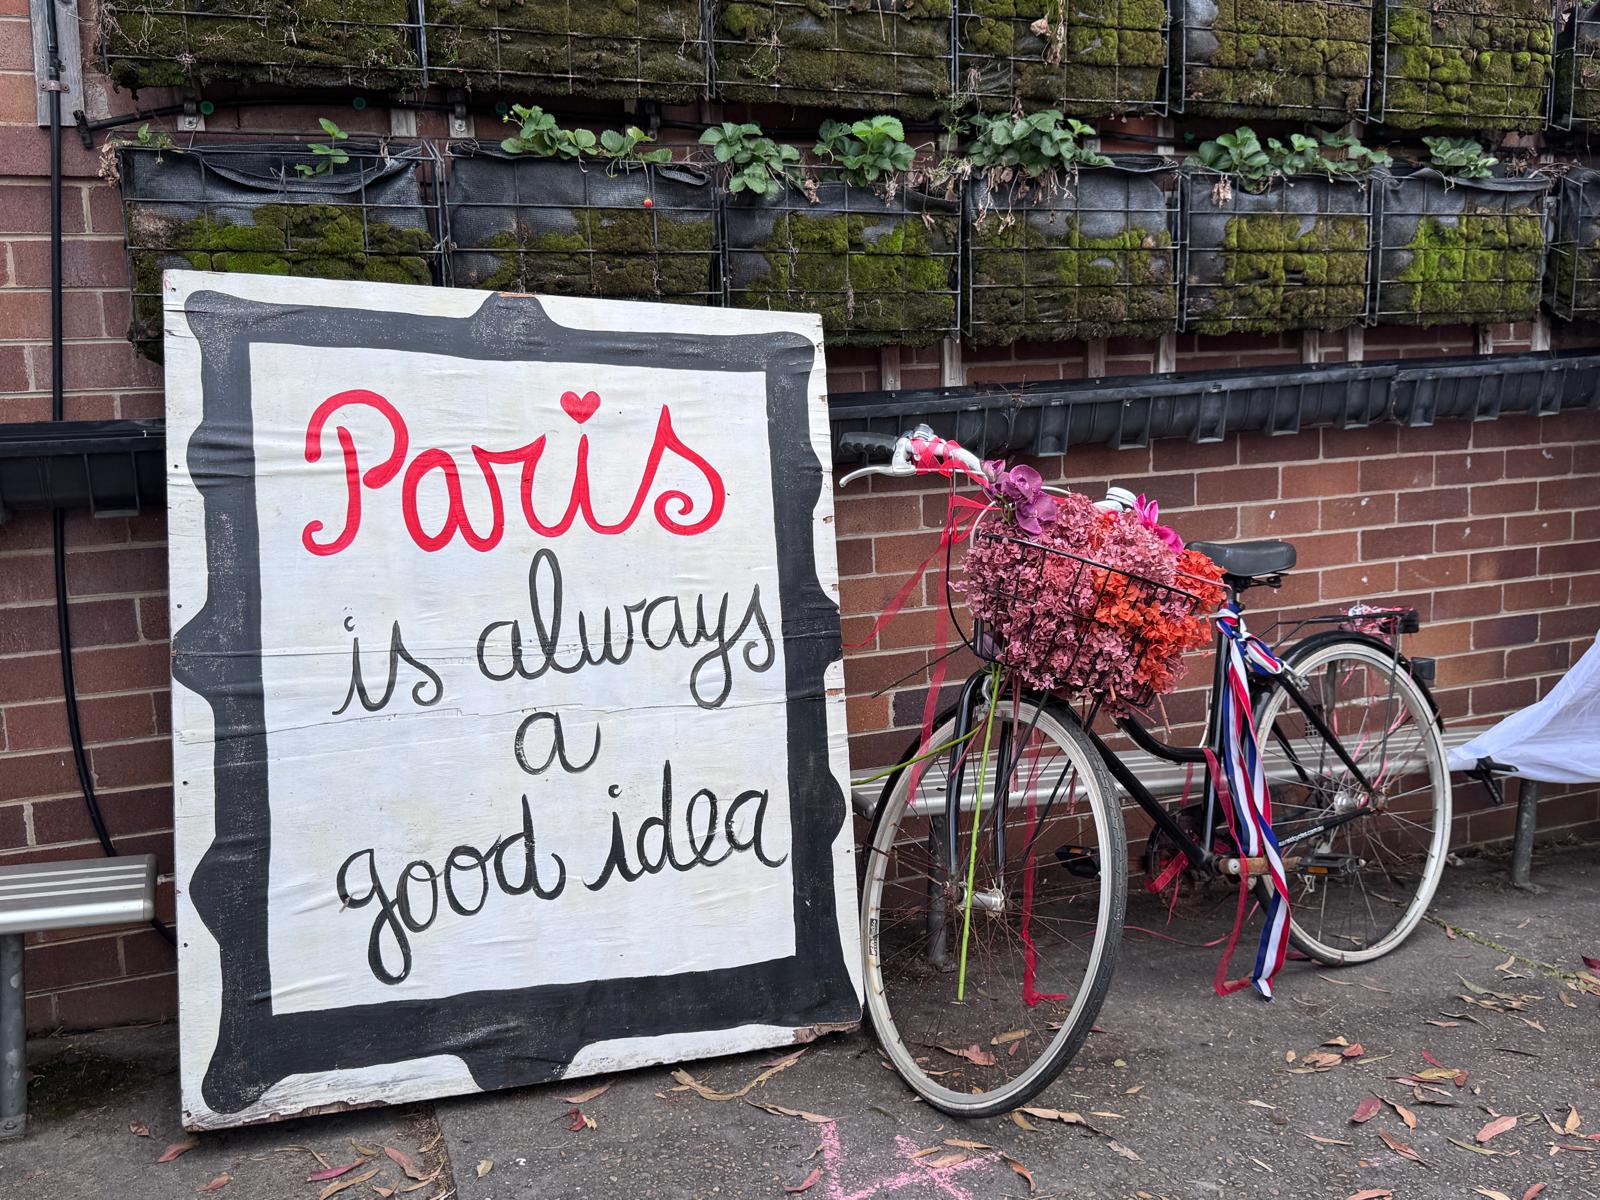 Paris
is always
a
good idea